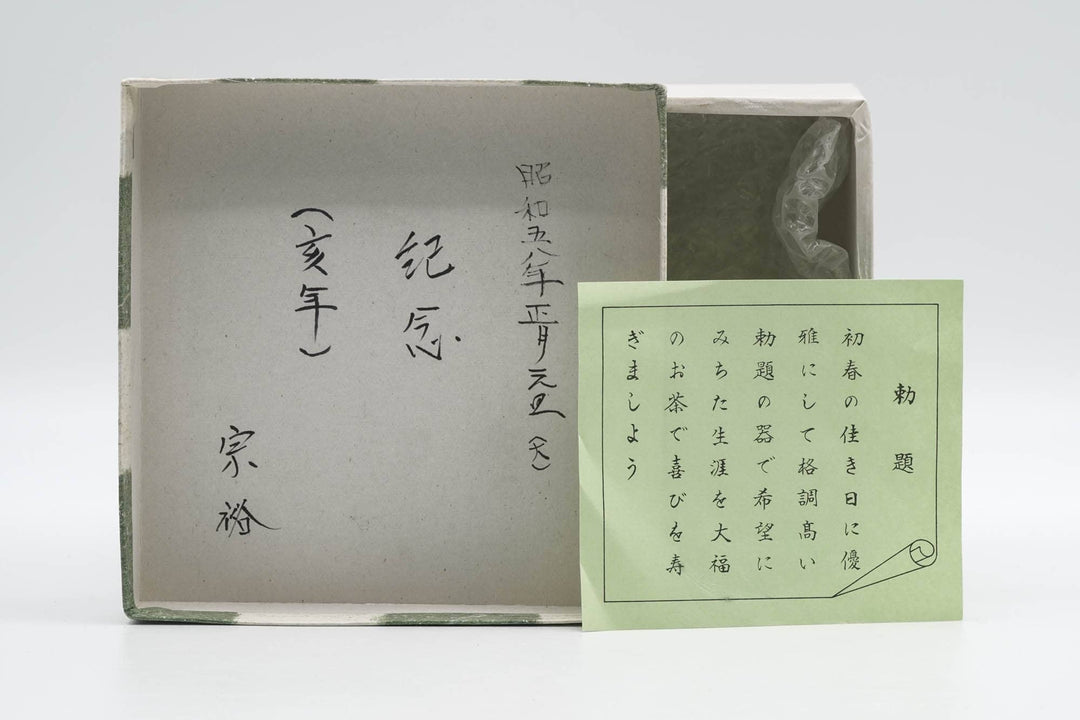 昭和五八年正月元旦(大)
紀念
(亥年)
宗裕
勅題
初春の佳き日に優
雅にして格調高い
勅題の器で希望に
みちた生涯を大福
のお茶で喜びを寿
ぎましょう